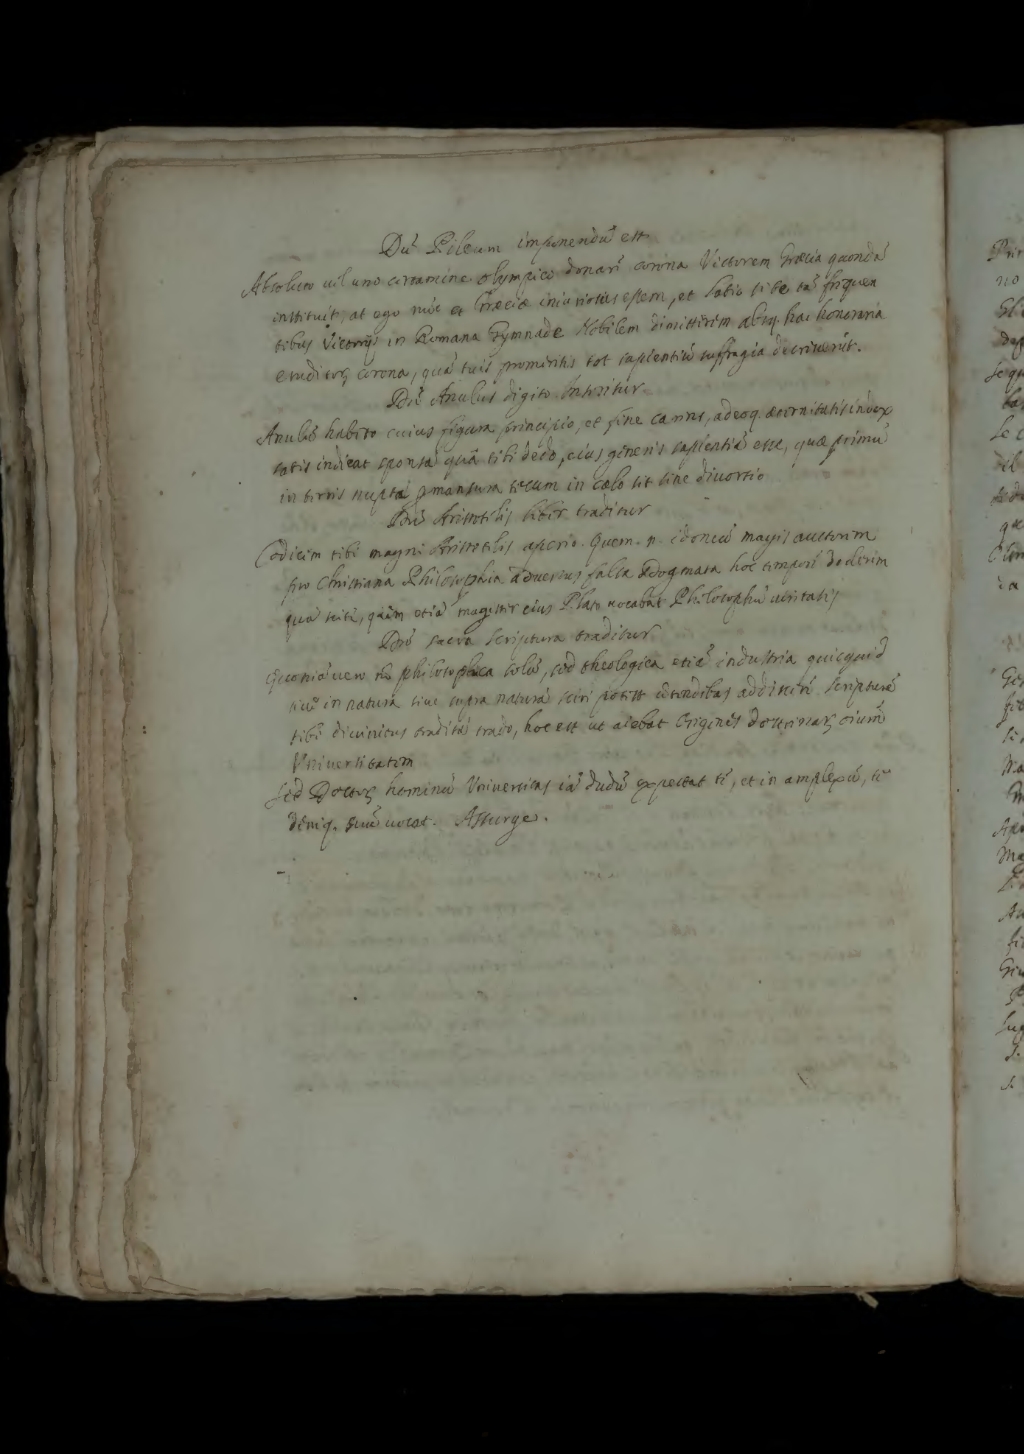 Dū Pileum imponendū est
Absoluto vel uno certamine olympico donari corona Victorem Græcia quondā
instituit, at ego nūc et Græciæ iniuriosus essem, et Latio si te tā frequen
tibus Victorijs in Romana Gymnade Nobilem dimitterem absq. hac honoraria
eruditorū corona, quā tuis promeritis tot sapientiū suffragia decreverūt.
Dū Anulus digito Inseritur
Anulū habeto cuius figura principio, et fine carens, adeoq. æternitatis index
satis indicat sponsā quā tibi dedo, eius generis sapientiā esse, quæ primū
in terris nupta pmansura tecum in cælo sit sine divortio
Dū Aristotelis liber traditur
Codicem tibi magni Aristotelis aperio. Quem .n. idoneū magis auctorem
pro Christiana Philosophia adversus falsa dogmata hoc tempori dederim
quā quem etiā magister eius Plato vocabat Philosophū veritatis
Dū sacra scriptura traditur
Quoniā vero nō philosophica solū, sed theologica etiā industria quicquid
sive in natura sive supra naturā sciri potest contendibas addiscere scripturā
tibi divinitus traditā trado, hoc est ut aiebat Origenes doctrinarū oiūm
Universitatem
Sed Doctorū hominū Universitas iā dudū expectat te, et in amplexū, te
deniq. suū vocat. Assurge.